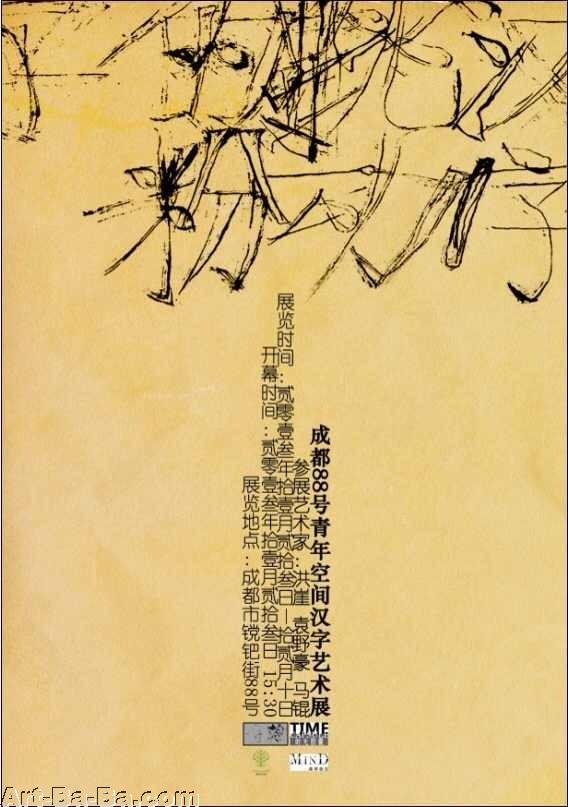 成都88号青年空间汉字艺术展
参展艺术家：洪崖 袁野豪 马锟
展览时间：贰零壹叁年拾壹月贰拾叁日—拾贰月十日
开幕时间：贰零壹叁年拾壹月贰拾叁日 15:30
展览地点：成都市镋钯街88号
TIME
MiND
Art-Ba-Ba.com